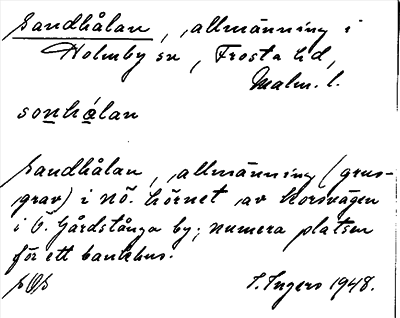 Sandhålan, allmänning i
Holmby sn, Frosta hd,
Malm. l.
sonhǻlan
Sandhålan, allmänning (grus-
grav) i nö. hörnet av korsvägen
i Ö. Gårdstånga by; numera platsen
för ett bankhus.
I. Ingers 1948.